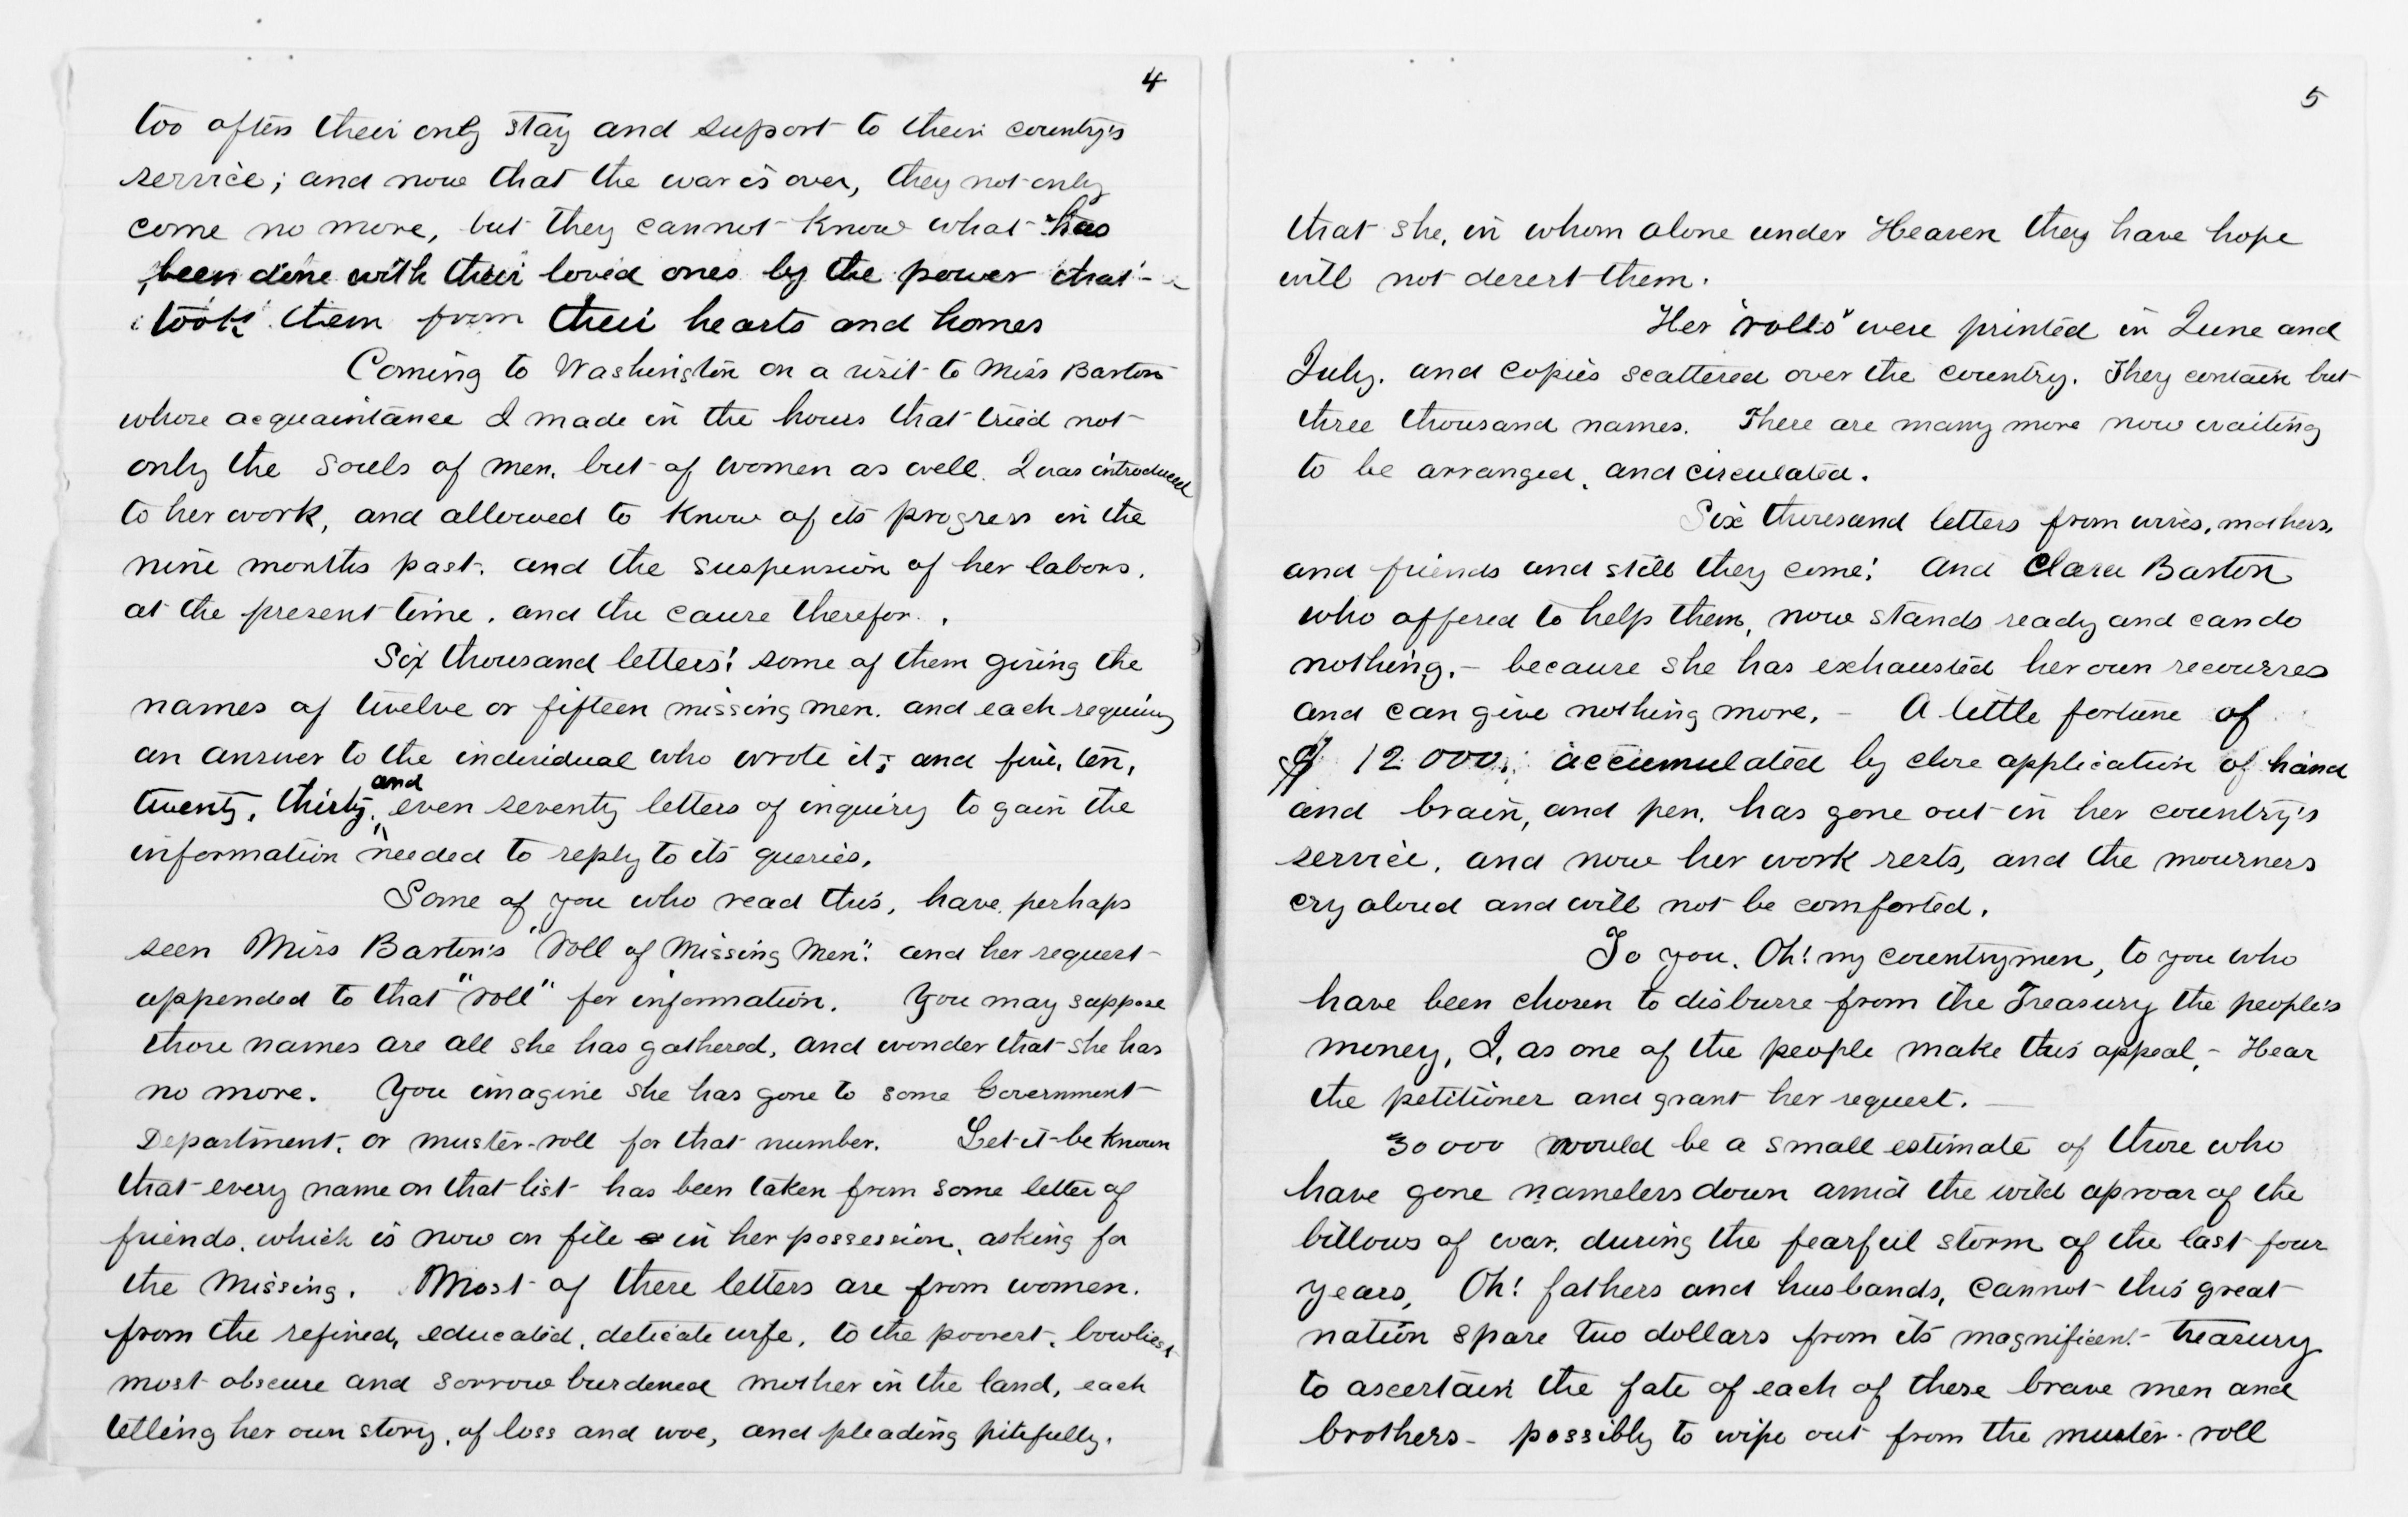 4
too often their only stay and support to their country's
service; and now that the war is over, they not only
come no more, but they cannot know what has
been done with their loved ones by the power that
took them from their hearts and homes
Coming to Washington on a visit to Miss Barton
whose acquaintance I made in the hours that tried not
only the souls of men, but of women as well. I was introduced
to her work, and allowed to know of its progress in the
nine months past, and the suspension of her labors,
at the present time, and the cause therefor.
Six thousand letters! some of them giving the
names of twelve or fifteen missing men, and each requiring
an answer to the individual who wrote it; and five, ten,
twenty, thirty, and even seventy letters of inquiry to gain the
information needed to reply to its queries.
Some of you who read this, have perhaps
seen Miss Barton's "Roll of Missing Men": and her request
appended to that "roll" for information. You may suppose
those names are all she has gathered, and wonder that she has
no more. You imagine she has gone to some Government
Department, or muster-roll for that number. Let it be known
that every name on that list has been taken from some letter of
friends, which is now on file in her possession, asking for
the Missing. Most of these letters are from women,
from the refined, educated, delicate wife, to the poorest, lowliest
most obscure and sorrow burdened mother in the land, each
telling her own story, of loss and woe, and pleading pitifully,
5
that she, in whom alone under Heaven they have hope
will not desert them.
Her "rolls" were printed in June and
July, and copies scattered over the country. They contain but
three thousand names. There are many more now waiting
to be arranged, and circulated.
Six thousand letters from wives, mothers,
and friends and still they come! And Clara Barton
who offered to help them, now stands ready and can do
nothing, - because she has exhausted her own recourses
and can give nothing more. - A little fortune of
$ 12.000. accumulated by close application of hand
and brain, and pen, has gone out in her country's
service, and now her work rests, and the mourners
cry aloud and will not be comforted.
To you, Oh! my countrymen, to you who
have been chosen to disburse from the Treasury the people's
money, I, as one of the people make this appeal, - Hear
the petitioner and grant her request. —
30000 would be a small estimate of those who
have gone nameless down amid the wild uproar of the
billows of war, during the fearful storm of the last four
years, Oh! fathers and husbands, cannot this great
nation spare two dollars from its magnificent treasury
to ascertain the fate of each of these brave men and
brothers - possibly to wipe out from the muster-roll